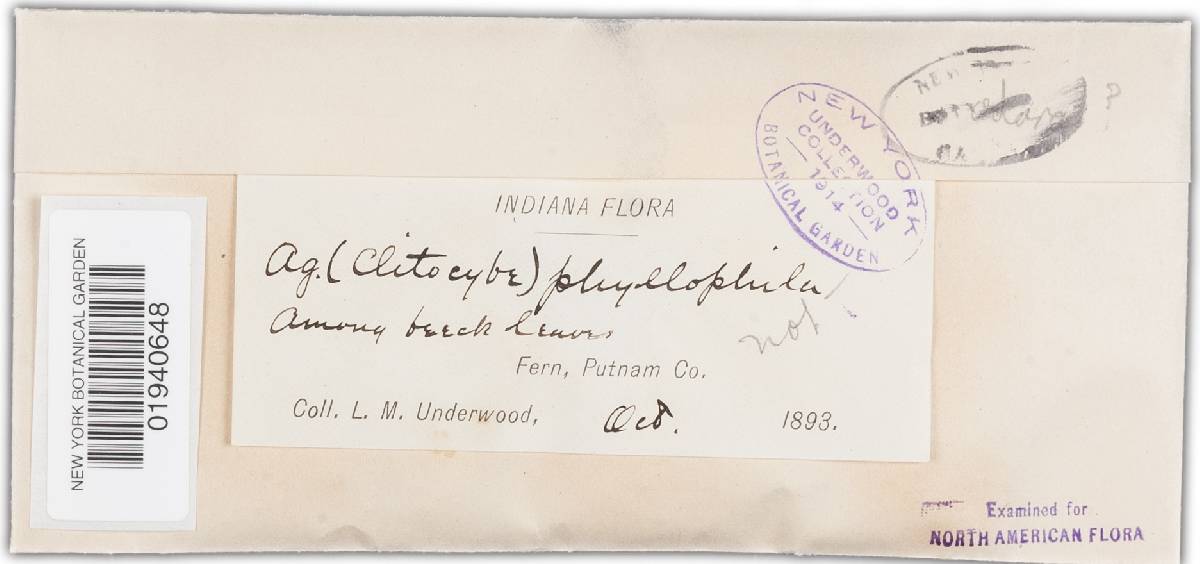 NEW
?
NEW YORK
UNDERWOOD
COLLECTION
1914
BOTANICAL GARDEN
INDIANA FLORA
Ag. (Clitocybe) phyllophila
Among beech leaves
not
Fern, Putnam Co.
Coll. L. M. Underwood, Oct. 1893.
NEW YORK BOTANICAL GARDEN
01940648
Examined for
NORTH AMERICAN FLORA